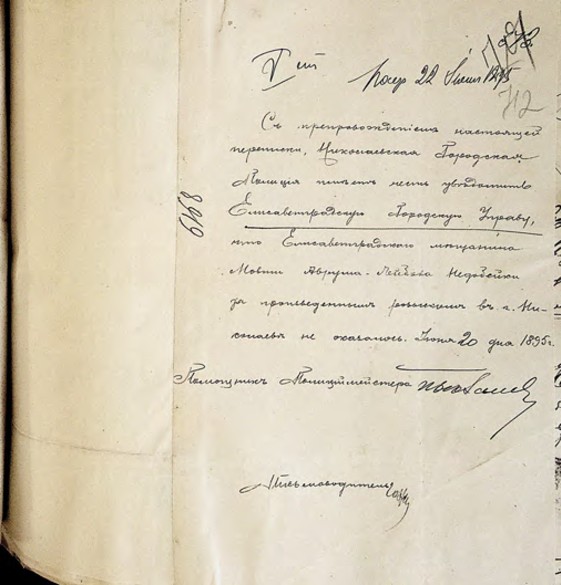 V ст
22 Июня 1895
712
Съ препровожденіемъ настоящей
переписки, Николаевская Городская
Полиція имѣетъ честь увѣдомить
Елисаветградскую Городскую Управу,
что Елисаветградскаго мѣщанина
Мовши Аврума-Лейбова Недобейки
за произведеннымъ розыскомъ въ г. Ни-
колаевѣ не оказалось. Іюня 20 дня 1895г.
Помощникъ Полиціймейстера
Письмоводитель